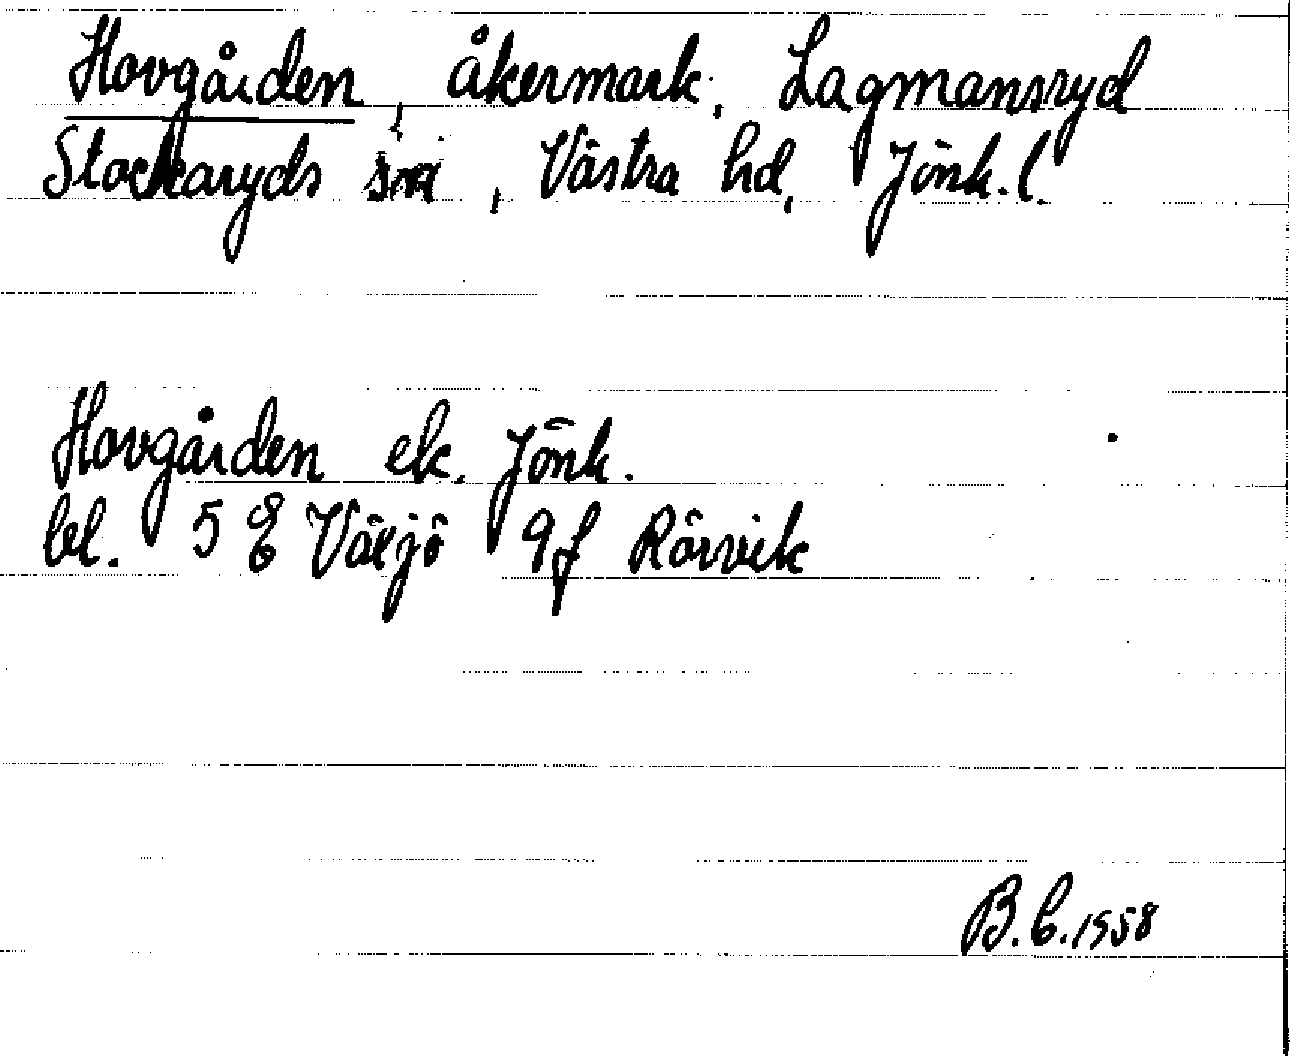 Hovgården, åkermark, Lagmansryd
Stockaryds sn, Västra hd, Jönk. l.
Hovgården ek. Jönk.
bl. 5 E Växjö 9f Rörvik
B. E. 1958